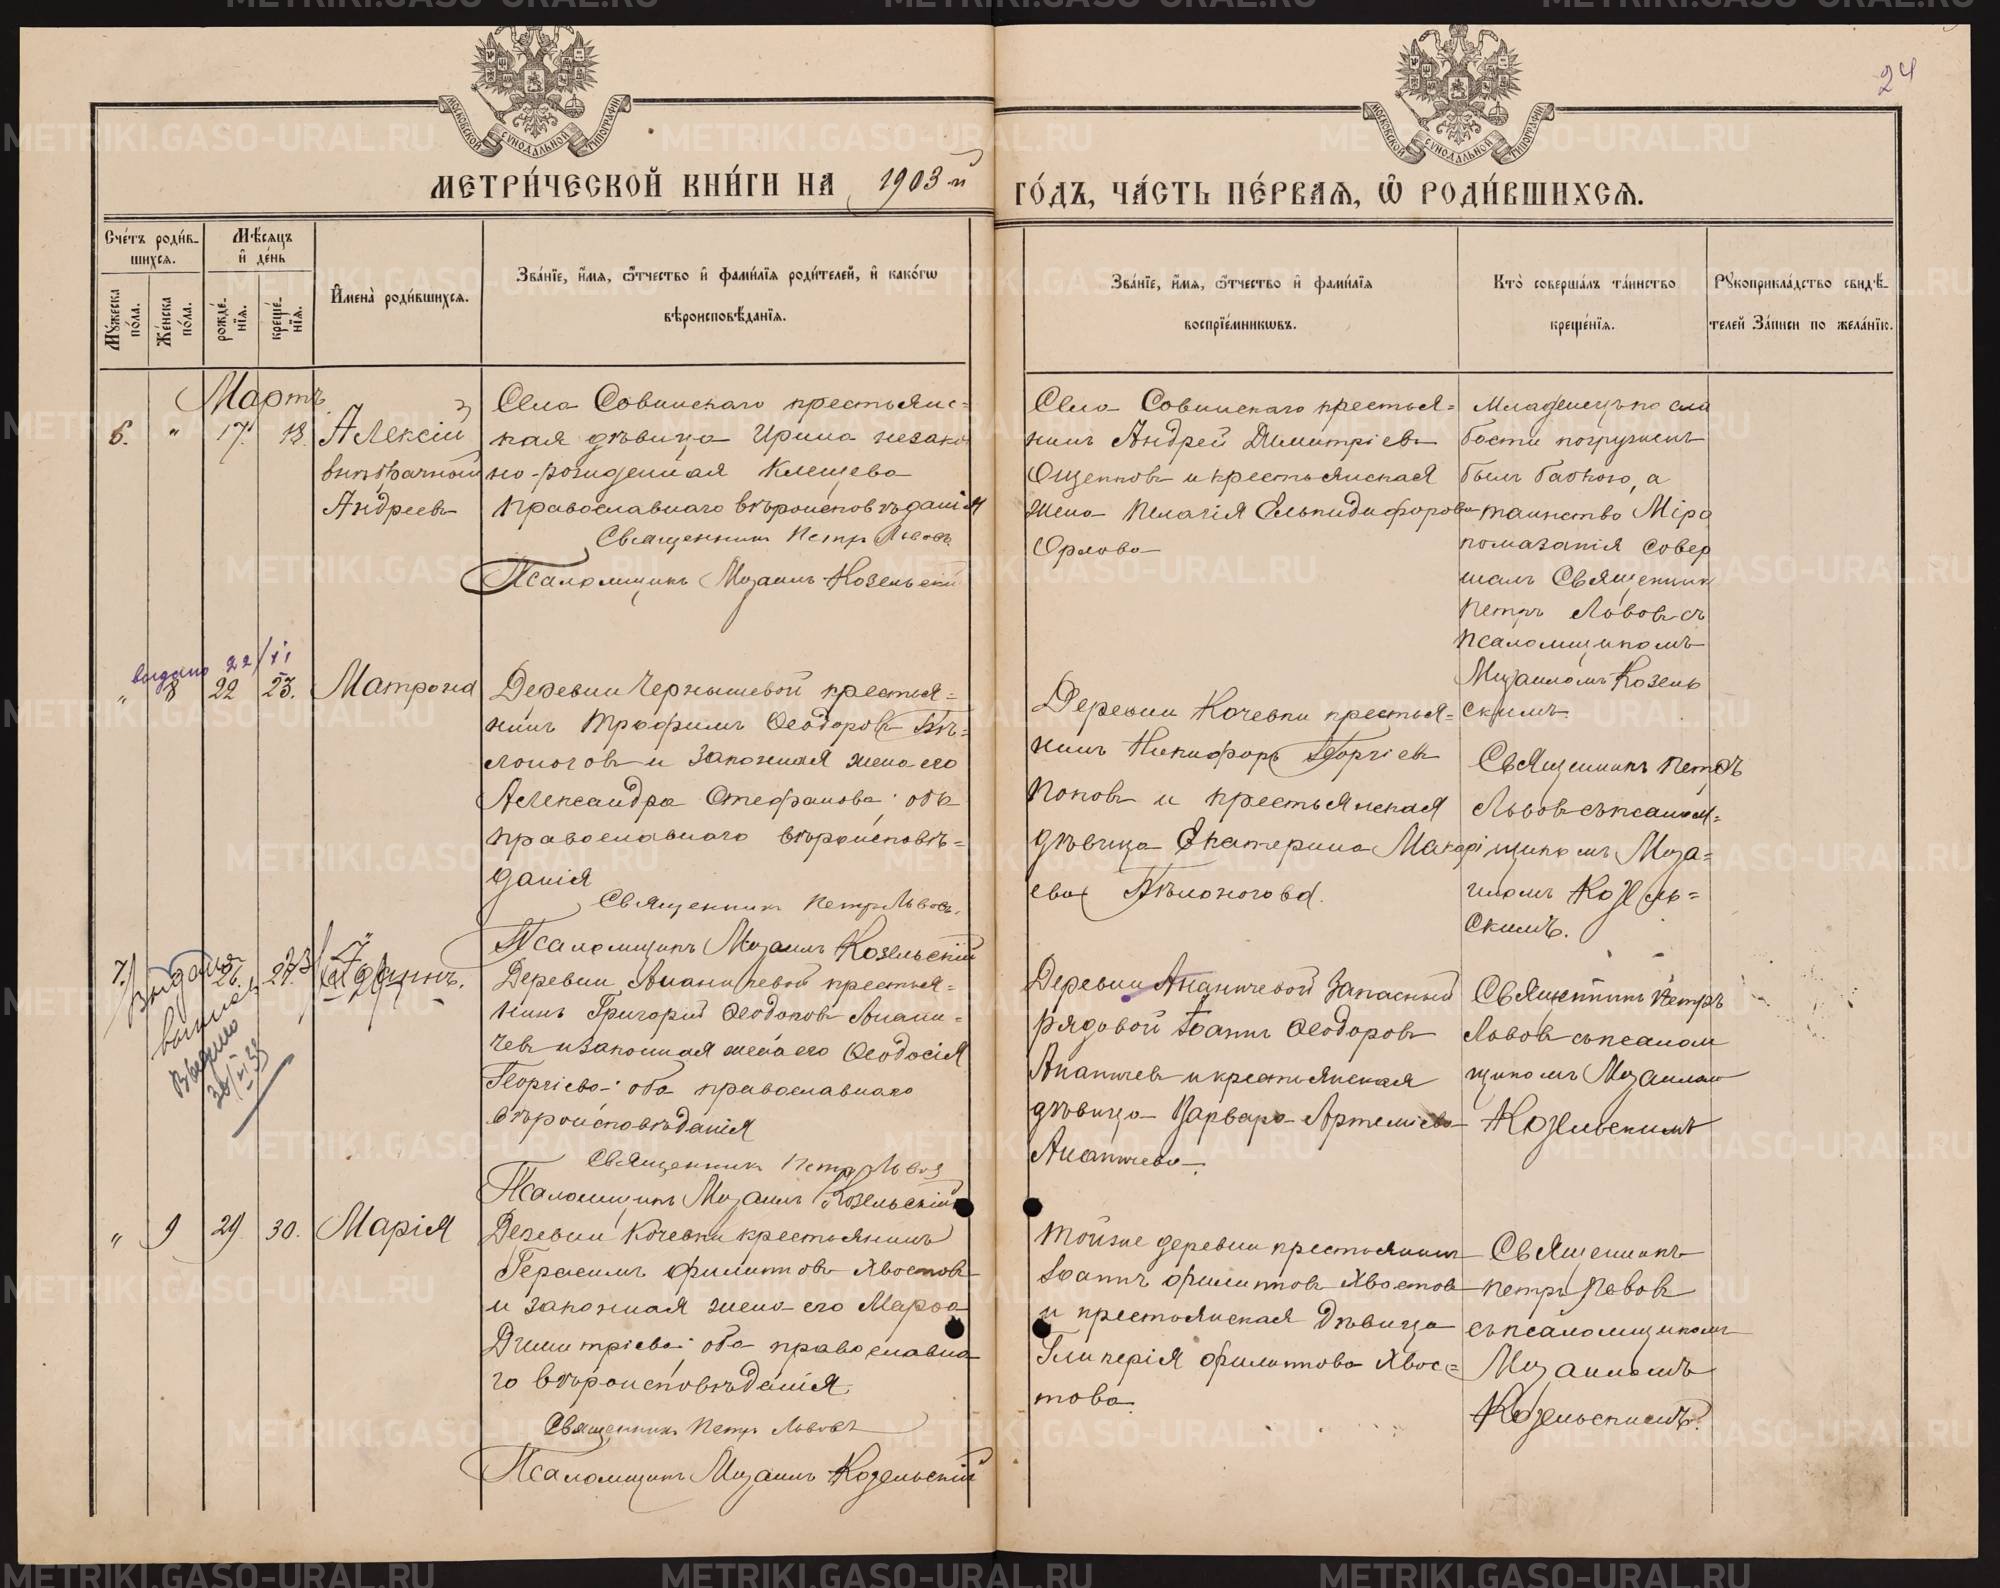 24
МЕТРИ́ЧЕСКОЙ КНИ́ГИ НА 1903-й ГО́ДЪ, ЧА́СТЬ ПЕ́РВАЯ, Ѡ РОДИ́ВШИХСЯ.
МОСКОВСКОЙ СУНОДАЛЬНОЙ ТИПОГРАФІИ
МОСКОВСКОЙ СУНОДАЛЬНОЙ ТИПОГРАФІИ
Сче́тъ роди́в-
шихся.
Му́жеска по́ла.
Же́нска по́ла.
Мѣ́сяцъ и де́нь
рожде́-нїя.
креще́-нїя.
И҆мена̀ роди́вшихся.
Зва́нїе, и҆́мя, ѻ҆́тчество и҆ фами́лїя роди́телей, и҆ како́гѡ
вѣроисповѣ́данїя.
Зва́нїе, и҆́мя, ѻ҆́тчество и҆ фами́лїя
воспрїе́мникѡвъ.
Кто̀ соверша́лъ та́инство
креще́нїя.
Рукоприкла́дство свидѣ́-
телей за́писи по жела́нїю.
Мартъ
6. " 17. 18. Алексій
внѣбрачный
Андреевъ
Села Совинскаго крестьянс-
кая дѣвица Ирина незако
но-рожденная Клещева
православнаго вѣроисповѣданія
Священникъ Петръ Львовъ
Псаломщикъ Михаилъ Козельскій
Села Совинскаго крестья-
нинъ Андрей Димитріевъ
Ощепковъ и крестьянская
жена Пелагія Елпидифорова
Орлова
Младенецъ по сла
бости погруженъ
былъ бабкою, а
таинство Міро
помазанія совер
шалъ Священник
Петръ Львовъ съ
псаломщикомъ
Михаиломъ Козель
скимъ.
Выдано 22/II
" 8 22 23. Матрона
Деревни Чернышевой крестья-
нинъ Трофимъ Ѳеодоровъ Бѣ-
лоноговъ и законная жена его
Александра Стефанова; оба
православнаго вѣроисповѣ-
данія
Священникъ Петръ Львовъ.
Псаломщикъ Михаилъ Козельскій
Деревни Кочевки крестья-
нинъ Никифоръ Георгіевъ
Поповъ и крестьянская
дѣвица Екатерина Макарі
ева Бѣлоногова.
Священникъ Петръ
Львовъ съ псалом-
щикомъ Миха-
иломъ Козель-
скимъ.
7. " 26. 27.
Выдано
Выдано
Деревни Ананичевой крестья-
нинъ Григорій Ѳеодоровъ Анани-
чевъ и законная жена его Ѳеодосія
Георгіева; оба православнаго
вѣроисповѣданія
Священникъ Петръ Львовъ
Псаломщикъ Михаилъ Козельскій
Деревни Ананичевой запасный
рядовой Іоаннъ Ѳеодоровъ
Ананичевъ и крестьянская
дѣвица Варвара Артеміева
Ананичева.
Священникъ Петръ
Львовъ съ псалом
щикомъ Михаилом
Козельскимъ
" 9 29 30. Марія
Деревни Кочевки крестьянинъ
Герасимъ Филипповъ Хвостовъ
и законная жена его Марѳа
Димитріева; оба православна
го вѣроисповѣданія.
Священникъ Петръ Львовъ
Псаломщикъ Михаилъ Козельскій
Той же деревни крестьянинъ
Іоаннъ Филипповъ Хвостовъ
и крестьянская дѣвица
Гликерія Филиппова Хвос-
това.
Священникъ
Петръ Львовъ
съ псаломщикомъ
Михаиломъ
Козельскимъ.
METRIKI.GASO-URAL.RU